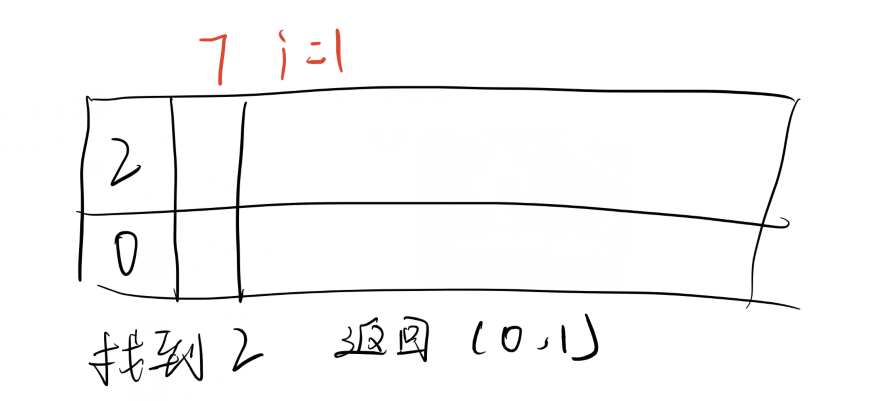 7 i=1
2
0
找到2 返回(0,1)